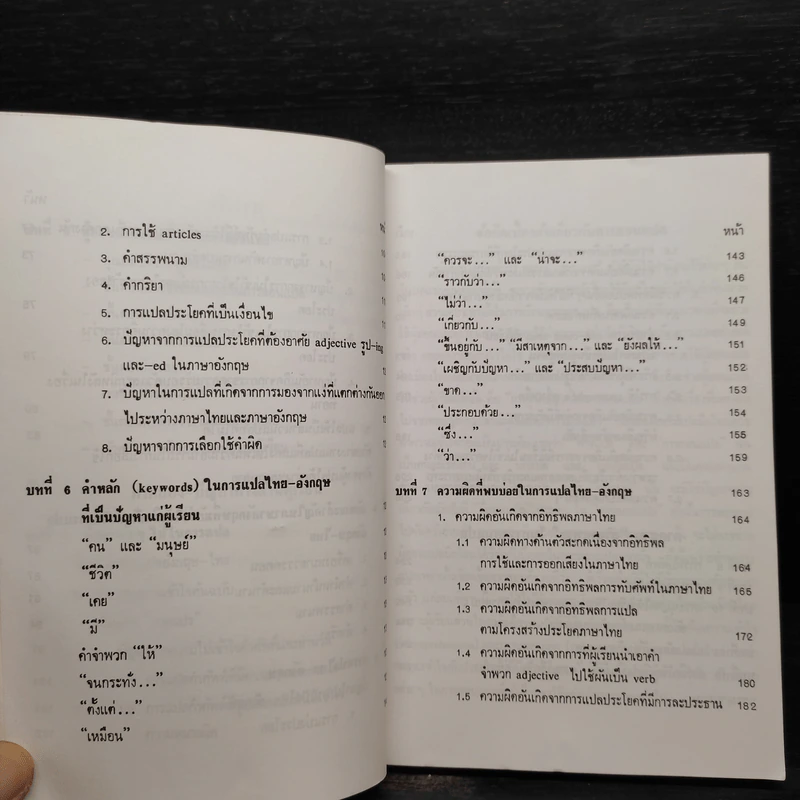 2. การใช้ articles
3. คำสรรพนาม
4. คำกริยา
5. การแปลประโยคที่เป็นเงื่อนไข
6. ปัญหาจากการแปลประโยคที่ต้องอาศัย adjective รูป-ing
และ-ed ในภาษาอังกฤษ
7. ปัญหาในการแปลที่เกิดจากการมองจากแง่ที่แตกต่างกันออก
ไประหว่างภาษาไทยและภาษาอังกฤษ
8. ปัญหาจากการเลือกใช้คำผิด
บทที่ 6 คำหลัก (keywords) ในการแปลไทย-อังกฤษ
ที่เป็นปัญหาแก่ผู้เรียน
“คน” และ “มนุษย์”
“ชีวิต”
“เคย”
“มี”
คำจำพวก “ให้”
“จนกระทั่ง...”
“ตั้งแต่...”
“เหมือน”
หน้า
“ควรจะ...” และ “น่าจะ...” 143
“ราวกับว่า...” 146
“ไม่ว่า...” 147
“เกี่ยวกับ...” 149
“ขึ้นอยู่กับ...” “มีสาเหตุจาก...” และ “ยังผลให้...” 151
“เผชิญกับปัญหา...” และ “ประสบปัญหา...” 152
“ขาด...” 153
“ประกอบด้วย...” 154
“ซึ่ง...” 155
“ว่า...” 159
บทที่ 7 ความผิดที่พบบ่อยในการแปลไทย-อังกฤษ 163
1. ความผิดอันเกิดจากอิทธิพลภาษาไทย 164
1.1 ความผิดทางด้านตัวสะกดเนื่องจากอิทธิพล
การใช้และการออกเสียงในภาษาไทย 164
1.2 ความผิดอันเกิดจากอิทธิพลการทับศัพท์ในภาษาไทย 165
1.3 ความผิดอันเกิดจากอิทธิพลการแปล
ตามโครงสร้างประโยคภาษาไทย 172
1.4 ความผิดอันเกิดจากการที่ผู้เรียนนำเอาคำ
จำพวก adjective ไปใช้ผันเป็น verb 180
1.5 ความผิดอันเกิดจากการแปลประโยคที่มีการละประธาน 182